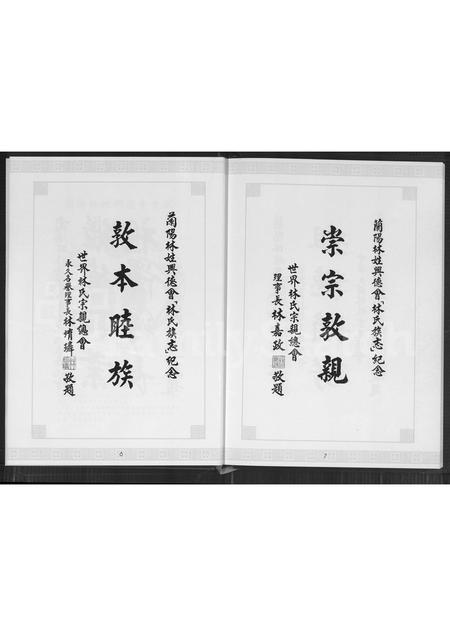 蘭陽林姓興德會「林氏族志」紀念
崇宗敦親
世界林氏宗親總會
理事長林嘉政敬題
7
蘭陽林姓興德會「林氏族志」紀念
敦本睦族
世界林氏宗親總會
永久名譽理事長林 璋敬題
6